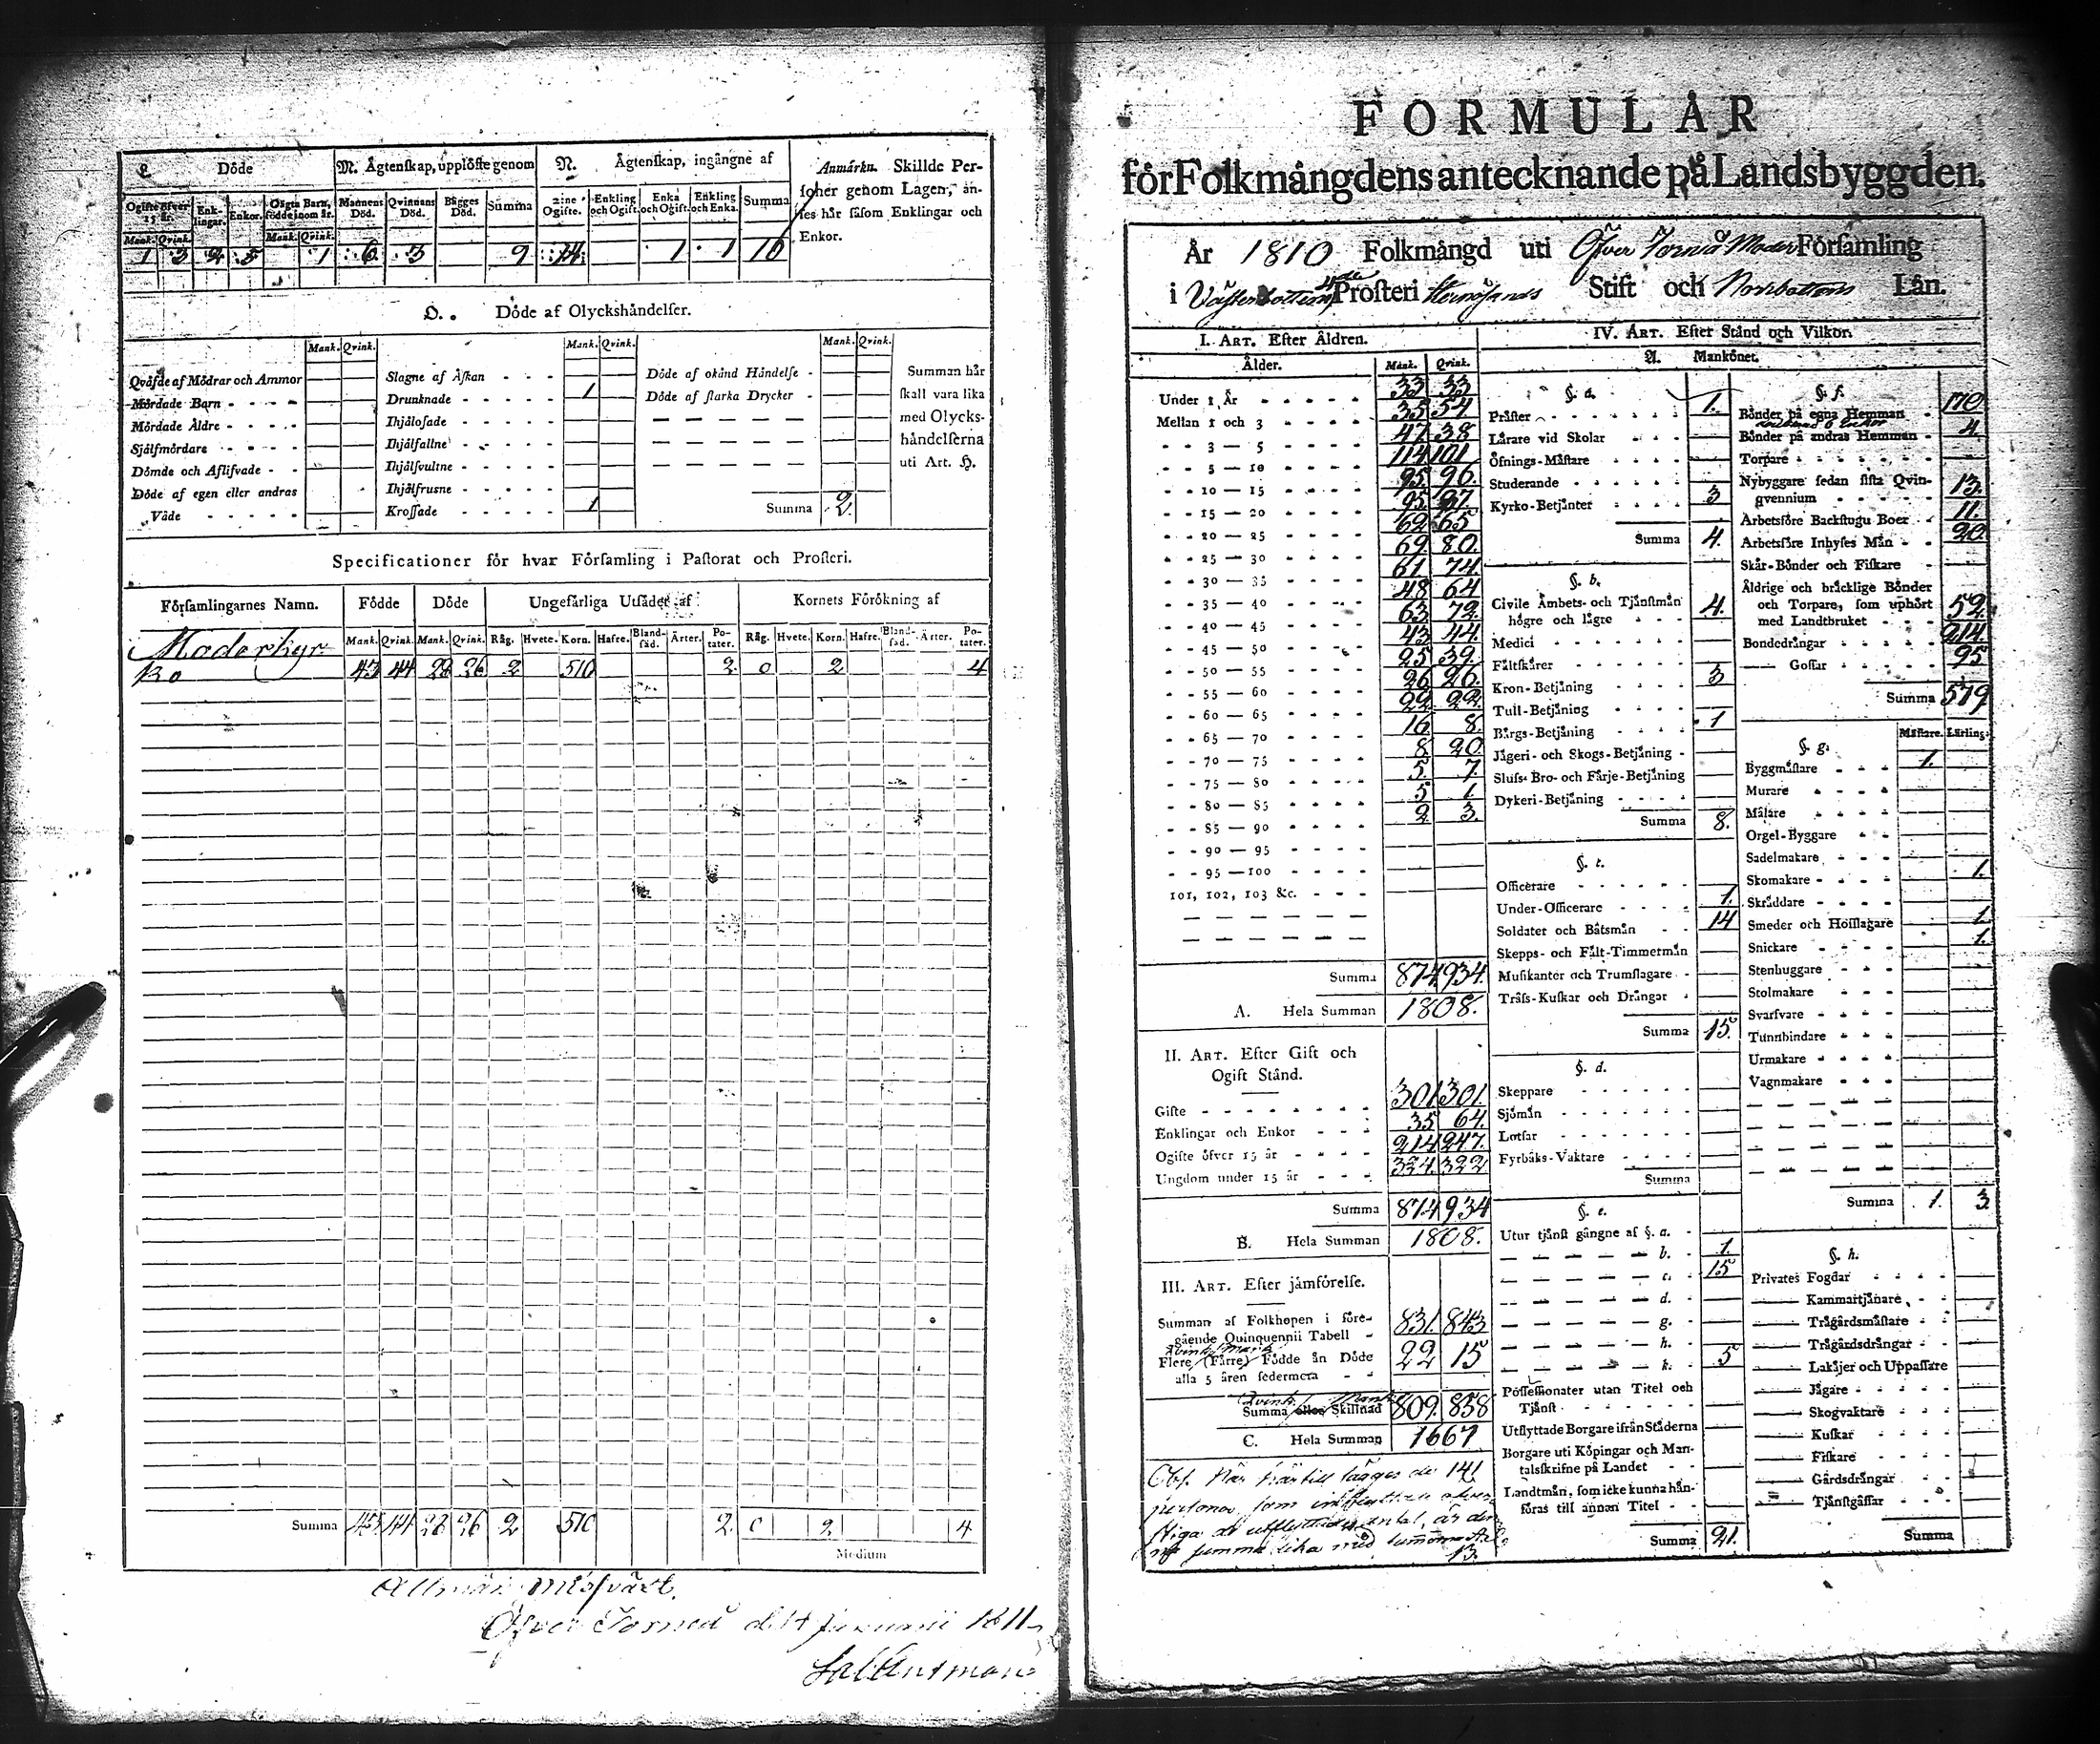 L. Döde
M. Ägtenskap, upplöste genom
N. Ägtenskap, ingångne af
Anmärkn. Skillde Personer genom Lagen, anses här såsom Enklingar och Enkor.
Ogifte öfver 15 år. Enklingar. Enkor. Oägta Barn, födde inom år. Mannens Död. Qvinnans Död. Bägges Död. Summa Ogifte. Enkling och Ogift. Enka och Ogift. Enkling och Enka. Summa
Mank. Qvink. Mank. Qvink.
1 3 2 5 1 6 3 9 14 1 1 16
O. Döde af Olyckshändelser.
Mank. Qvink. Mank. Qvink. Mank. Qvink.
Qväfde af Mödrar och Ammor
Mördade Barn
Mördade Äldre
Sjelfmördare
Dömde och Aflifvade
Döde af egen eller andras
Våde
Slagne af Åskan
Drunknade 1
Ihjälosade
Ihjälfallne
Ihjälsvultne
Ihjälfrusne
Krossade 1
Döde af okänd Händelse
Döde af starka Drycker
Summa 2.
Summan här
skall vara lika
med Olycks-
händelserna
uti Art. H.
Specificationer för hvar Församling i Pastorat och Prosteri.
Församlingarnes Namn. Födde Döde Ungefärliga Utsädet af Kornets Förökning af
Mank. Qvink. Mank. Qvink. Råg. Hvete. Korn. Hafre. Blandsäd. Ärter. Potater. Råg. Hvete. Korn. Hafre. Blandsäd. Ärter. Potater.
Moderkyr
ko 43 44 28 26 2 510 2 0 2 4
Summa 43 44 28 26 2 510 2 0 2 4
Medium
Allmän Missväxt.
Öfver Torneå d. 14 Januarii 1811
FORMULÄR
för Folkmängdens antecknande på Landsbyggden.
År 1810 Folkmängd uti Öfver Torneå Moder Församling
i Västerbottens Prosteri Hernösands Stift och Norrbottens Län.
I. ART. Efter Åldren.
Ålder. Mank. Qvink.
Under 1 År 33 33
Mellan 1 och 3 35 54
3 — 5 47 38
5 — 10 114 101
10 — 15 95 96
15 — 20 95 97
20 — 25 62 65
25 — 30 69 80
30 — 35 61 74
35 — 40 48 64
40 — 45 63 72
45 — 50 43 44
50 — 55 25 39
55 — 60 26 26
60 — 65 22 22
65 — 70 16 8
70 — 75 8 20
75 — 80 5 7
80 — 85 5 1
85 — 90 2 3
90 — 95
95 — 100
101, 102, 103 &c.
Summa 874 934
A. Hela Summan 1808.
II. ART. Efter Gift och
Ogift Stånd.
Gifte 301 301
Enklingar och Enkor 35 64
Ogifte öfver 15 år 214 247
Ungdom under 15 år 324 322
Summa 874 934
B. Hela Summan 1808.
III. ART. Efter jämförelse.
Summan af Folkhopen i före-
gående Quinquennii Tabell 831 843
Flere (Färre) Födde än Döde
alla 5 åren sedermera 22 15
Summa eller Skillnad 809 858
C. Hela Summan 1667
Obs. När härtill lägges de 141
personer som
summa lika med
13.
IV. ART. Efter Stånd och Vilkor.
A. Mankönet.
§. a.
Präster 1.
Lärare vid Skolar
Öfnings-Mästare
Studerande
Kyrko-Betjänter 3
Summa 4.
§. b.
Civile Ämbets- och Tjänstmän
högre och lägre 4.
Medici
Fältskärer
Kron-Betjäning 3
Tull-Betjäning
Bärgs-Betjäning 1
Jägeri- och Skogs-Betjäning
Sluss- Bro- och Färje-Betjäning
Dykeri-Betjäning
Summa 8.
§. c.
Officerare
Under-Officerare 1.
Soldater och Båtsmän 14
Skepps- och Fält-Timmermän
Musikanter och Trumslagare
Träss-Kuskar och Drängar
Summa 15.
§. d.
Skeppare
Sjömän
Lotsar
Fyrbåks-Vaktare
Summa
§. e.
Utur tjänst gångne af §. a.
b. 1.
c. 15
d.
g.
h.
k. 5
Possessionater utan Titel och
Tjänst
Utflyttade Borgare ifrån Städerna
Borgare uti Köpingar och Man-
talsskrifne på Landet
Landtmän, som icke kunna hän-
föras till annan Titel
Summa 21.
§. f.
Bönder på egna Hemman 170
Bönder på andras Hemman 4.
Torpare
Nybyggare sedan sista Qvin-
qvennium 13.
Arbetsföre Backstugu Boer 11.
Arbetsföre Inhyses Män 20.
Skär-Bönder och Fiskare
Åldrige och bräcklige Bönder
och Torpare, som uphört
med Landtbruket 52
Bondedrängar 214
Gossar 95
Summa 579
§. g. Mästare. Lärling.
Byggmästare 1.
Murare
Målare
Orgel-Byggare
Sadelmakare
Skomakare 1.
Skräddare
Smeder och Hofslagare 1.
Snickare 1.
Stenhuggare
Stolmakare
Svarfvare
Tunnbindare
Urmakare
Vagnmakare
Summa 1. 3.
§. h.
Privates Fogdar
Kammartjänare
Trägårdsmästare
Trägårdsdrängar
Lakejer och Uppassare
Jägare
Skogvaktare
Kuskar
Fiskare
Gårdsdrängar
Tjänstgåssar
Summa